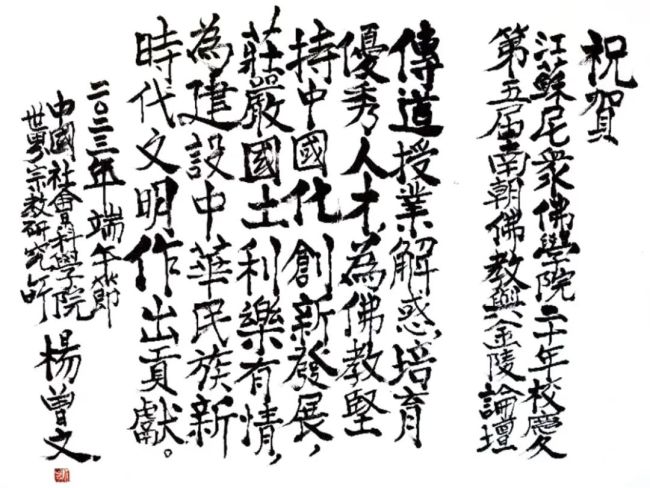 祝賀
江蘇尼衆佛學院二十年校慶
第五届南朝佛教與金陵論壇
傳道授業解惑,培育
優秀人才,為佛教堅
持中國化創新發展,
莊嚴國土利樂有情,
為建設中華民族新
時代文明作出貢獻。
二〇二三年端午節
中國社會科學院
世界宗教研究所
楊曾文